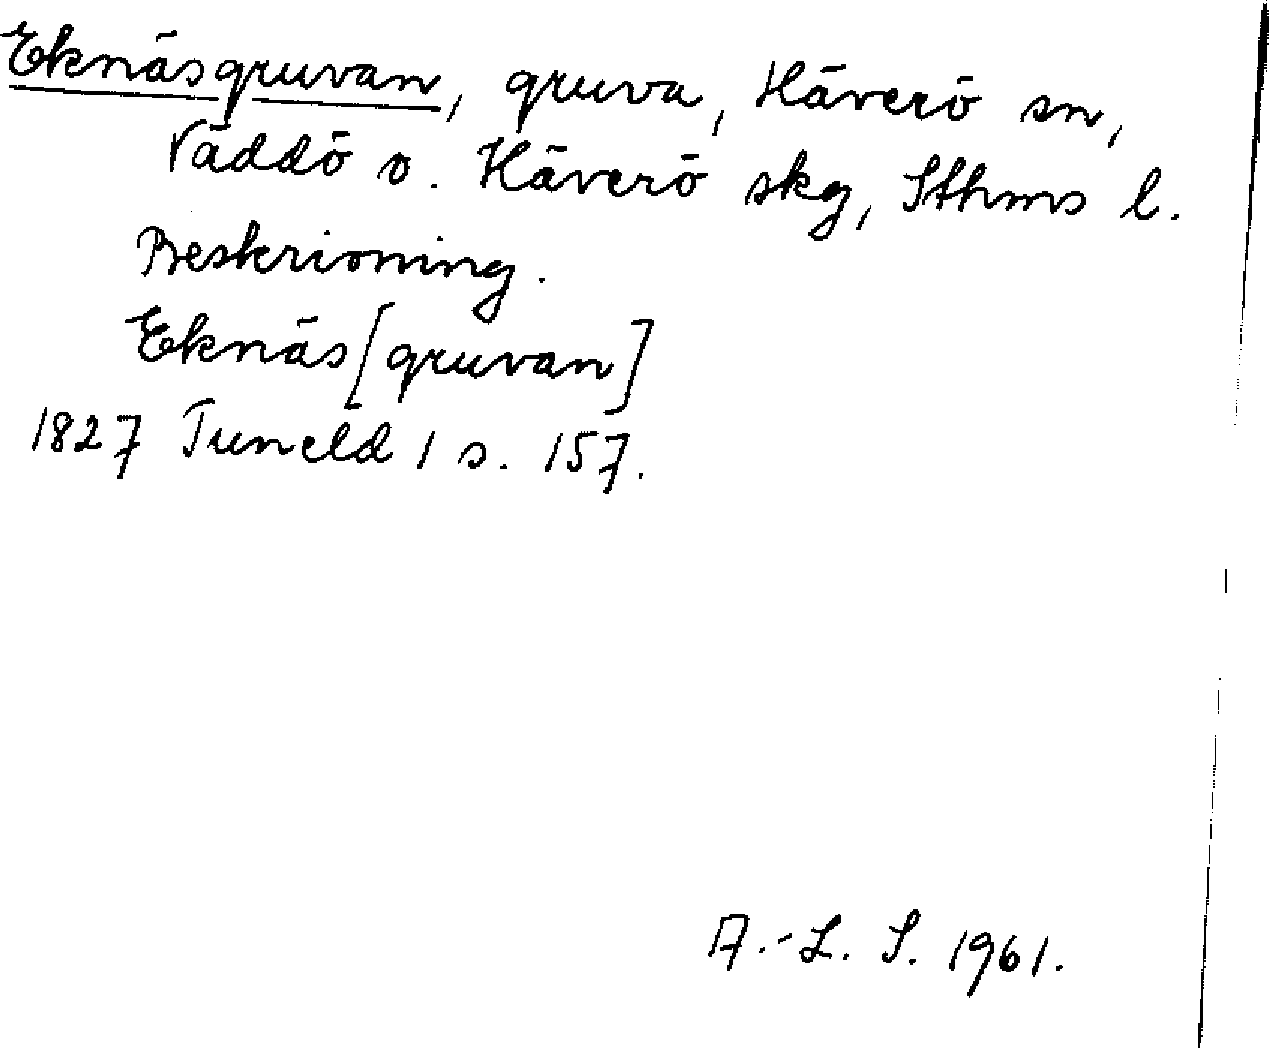 Eknäsgruvan, gruva, Häverö sn,
Väddö o. Häverö skg, Sthms l.
Beskrivning.
Eknäs[gruvan]
1827 Tuneld 1 s. 157.
A.-L. S. 1961.